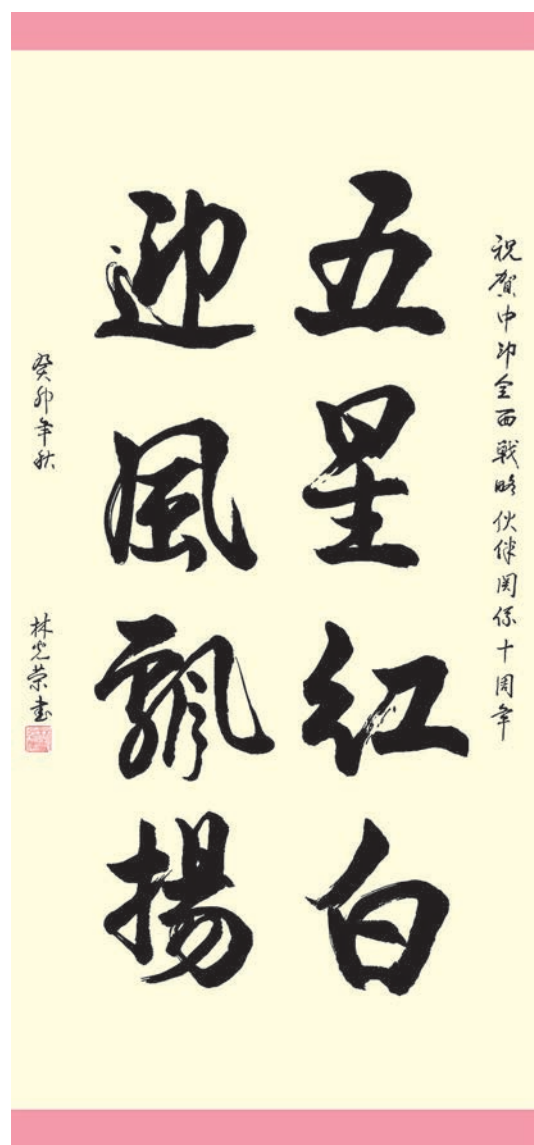 祝賀中印全面戰略伙伴関係十周年
五星红白
迎風飄揚
癸卯年秋
林光荣书